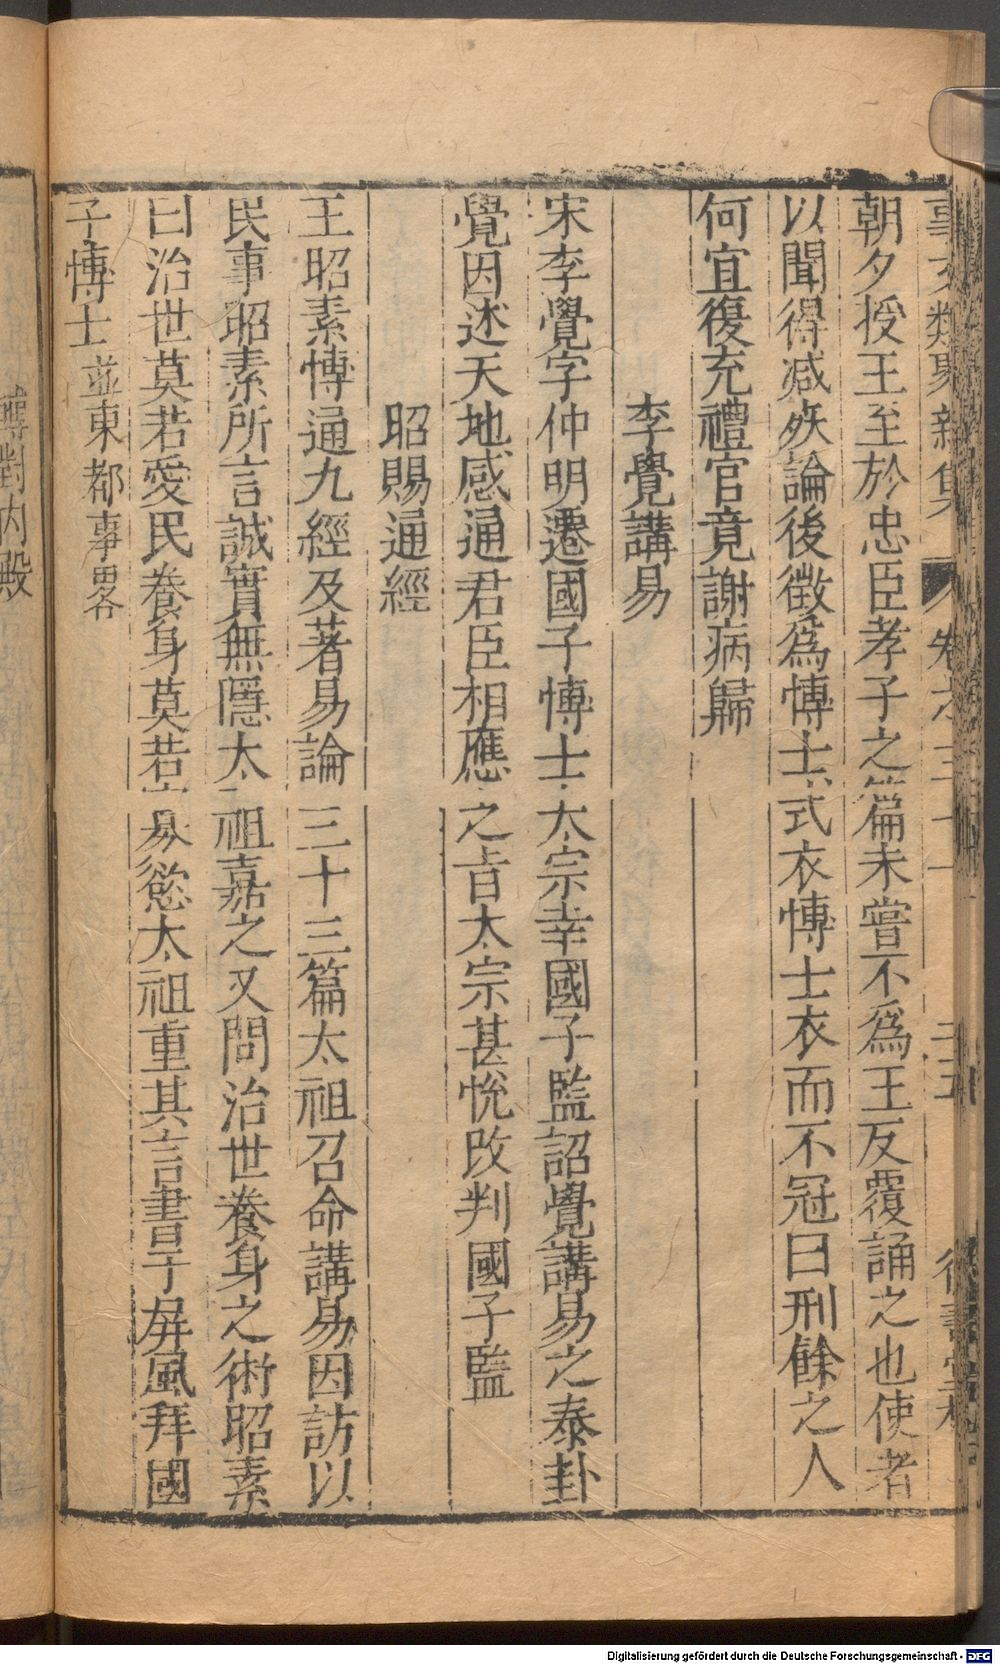 朝夕授王至於忠臣孝子之篇未嘗不為王反覆誦之也使者
以聞得減死論後徵爲博士式衣博士衣而不冠曰刑餘之人
何宜復充禮官竟謝病歸
李覺講易
宋李覺字仲明遷國子博士太宗幸國子監詔覺講易之泰卦
覺因述天地感通君臣相應之旨太宗甚悅改判國子監
昭賜通經
王昭素博通九經及著易論三十三篇太祖召命講易因訪以
民事昭素所言誠實無隱太祖嘉之又問治世養身之術昭素
曰治世莫若愛民養身莫若寡慾太祖重其言書于屏風拜國
子博士並東都事畧
對內殿
Digitalisierung gefördert durch die Deutsche Forschungsgemeinschaft - DFG